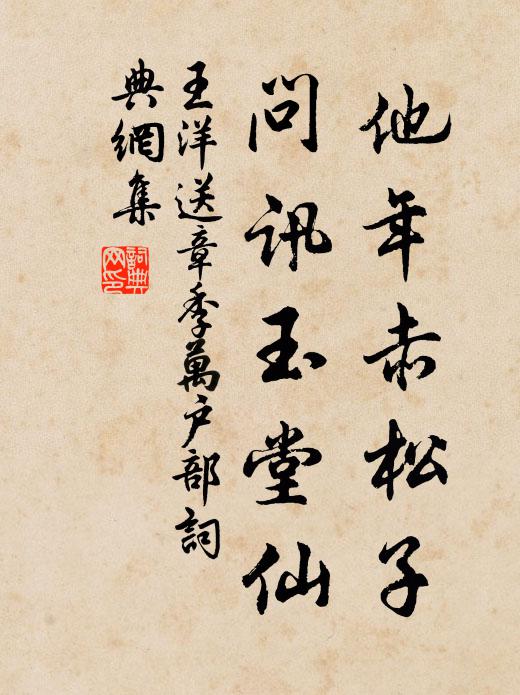 他年赤松子
问讯玉堂仙
王洋送章季萬户部詞
典網集
詞典
网印